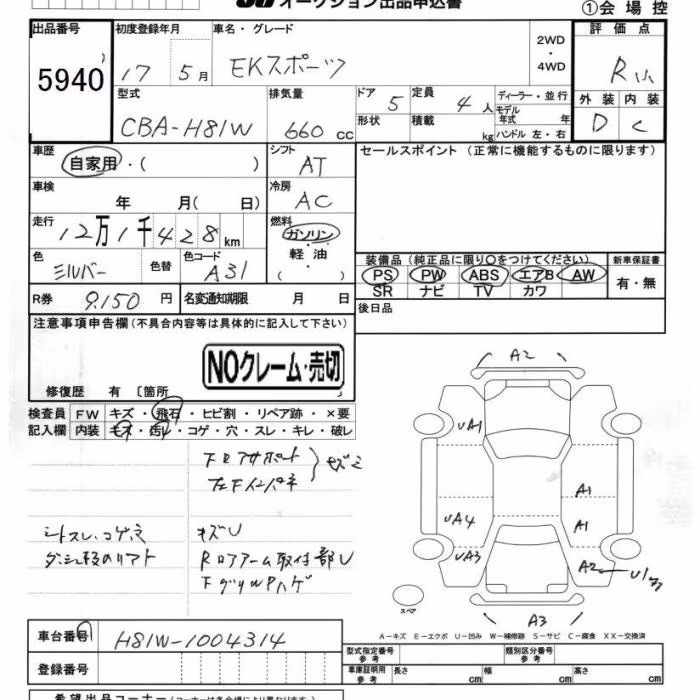 オークション出品申込書
①会場控
出品番号 初度登録年月 車名・グレード 2WD・4WD 評価点
5940 17 5月 EKスポーツ R
型式 排気量 ドア 5 定員 4人 ディーラー・並行 外装 内装
CBA-H81W 660 cc 形状 積載 kg モデル年式 年 D C
ハンドル 左・右
車歴 シフト セールスポイント (正常に機能するものに限ります)
自家用・( ) AT
車検 冷房
年 月( 日) AC
走行 燃料
12万1千428km ガソリン
色 色替 色コード 軽油 装備品 (純正品に限り○をつけてください) 新車保証書
シルバー A31 ( ) PS PW ABS エアB AW 有・無
SR ナビ TV カワ
R券 9,150円 名変通知期限 月 日 後日品
注意事項申告欄(不具合内容等は具体的に記入して下さい)
NOクレーム・売切
修復歴 有 〔箇所
検査員 FW キズ・飛石・ヒビ割・リペア跡・×要
記入欄 内装 キズ・汚レ・コゲ・穴・スレ・キレ・破レ
A2
UA1
A1
UA4 A1
UA3 A2
スペア
A3
キズU
Rロアアーム取付部U
A−キズ E−エクボ U−凹み W−補修跡 S−サビ C−腐食 XX−交換済
車台番号 H81W-1004314 型式指定番号 参考 類別区分番号 参考
登録番号 車庫証明用 参考 長さ cm 幅 cm 高さ cm
希望出品コーナー